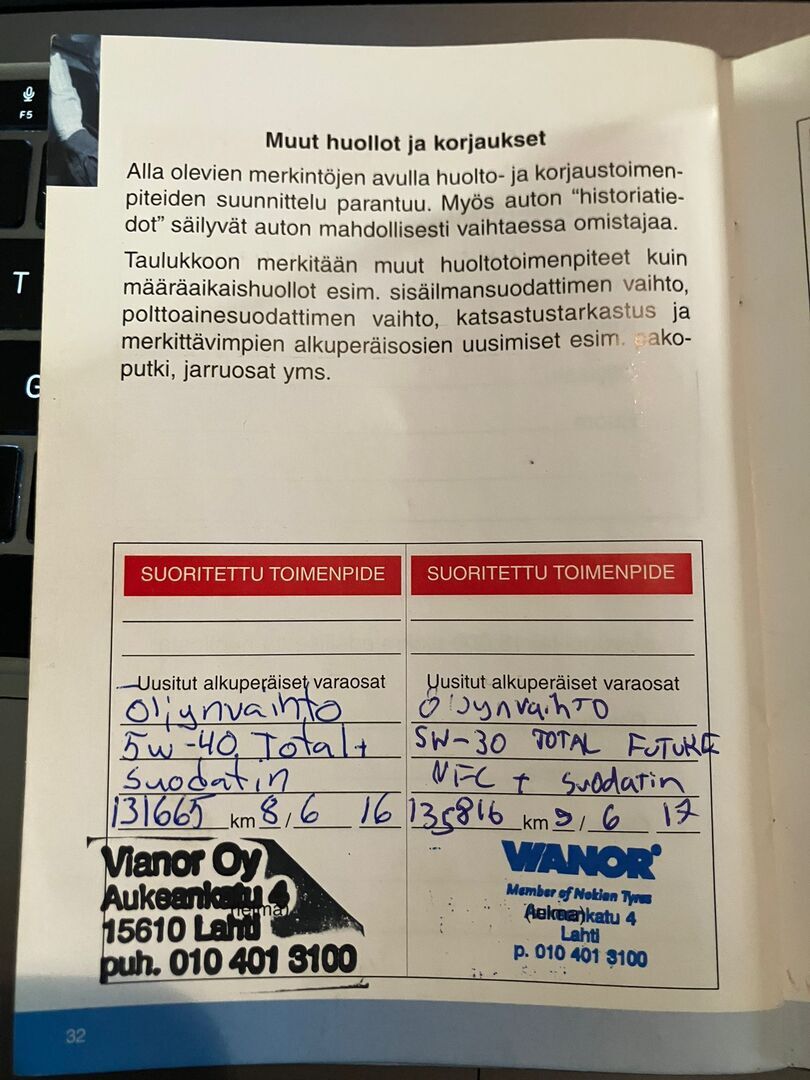 F5
T
G
Muut huollot ja korjaukset
Alla olevien merkintöjen avulla huolto- ja korjaustoimen-
piteiden suunnittelu parantuu. Myös auton “historiatie-
dot” säilyvät auton mahdollisesti vaihtaessa omistajaa.
Taulukkoon merkitään muut huoltotoimenpiteet kuin
määräaikaishuollot esim. sisäilmansuodattimen vaihto,
polttoainesuodattimen vaihto, katsastustarkastus ja
merkittävimpien alkuperäisosien uusimiset esim. pako-
putki, jarruosat yms.
SUORITETTU TOIMENPIDE
Uusitut alkuperäiset varaosat
Öljynvaihto
5w-40 Total +
Suodatin
131665 km 8/6 16
Vianor Oy
Aukeankatu 4
15610 Lahti
puh. 010 401 3100
SUORITETTU TOIMENPIDE
Uusitut alkuperäiset varaosat
Öljynvaihto
5W-30 TOTAL FUTURE
NFC + Suodatin
135816 km 9/6 17
VIANOR
Member of Nokian Tyres
Aukeankatu 4
Lahti
p. 010 401 3100
32